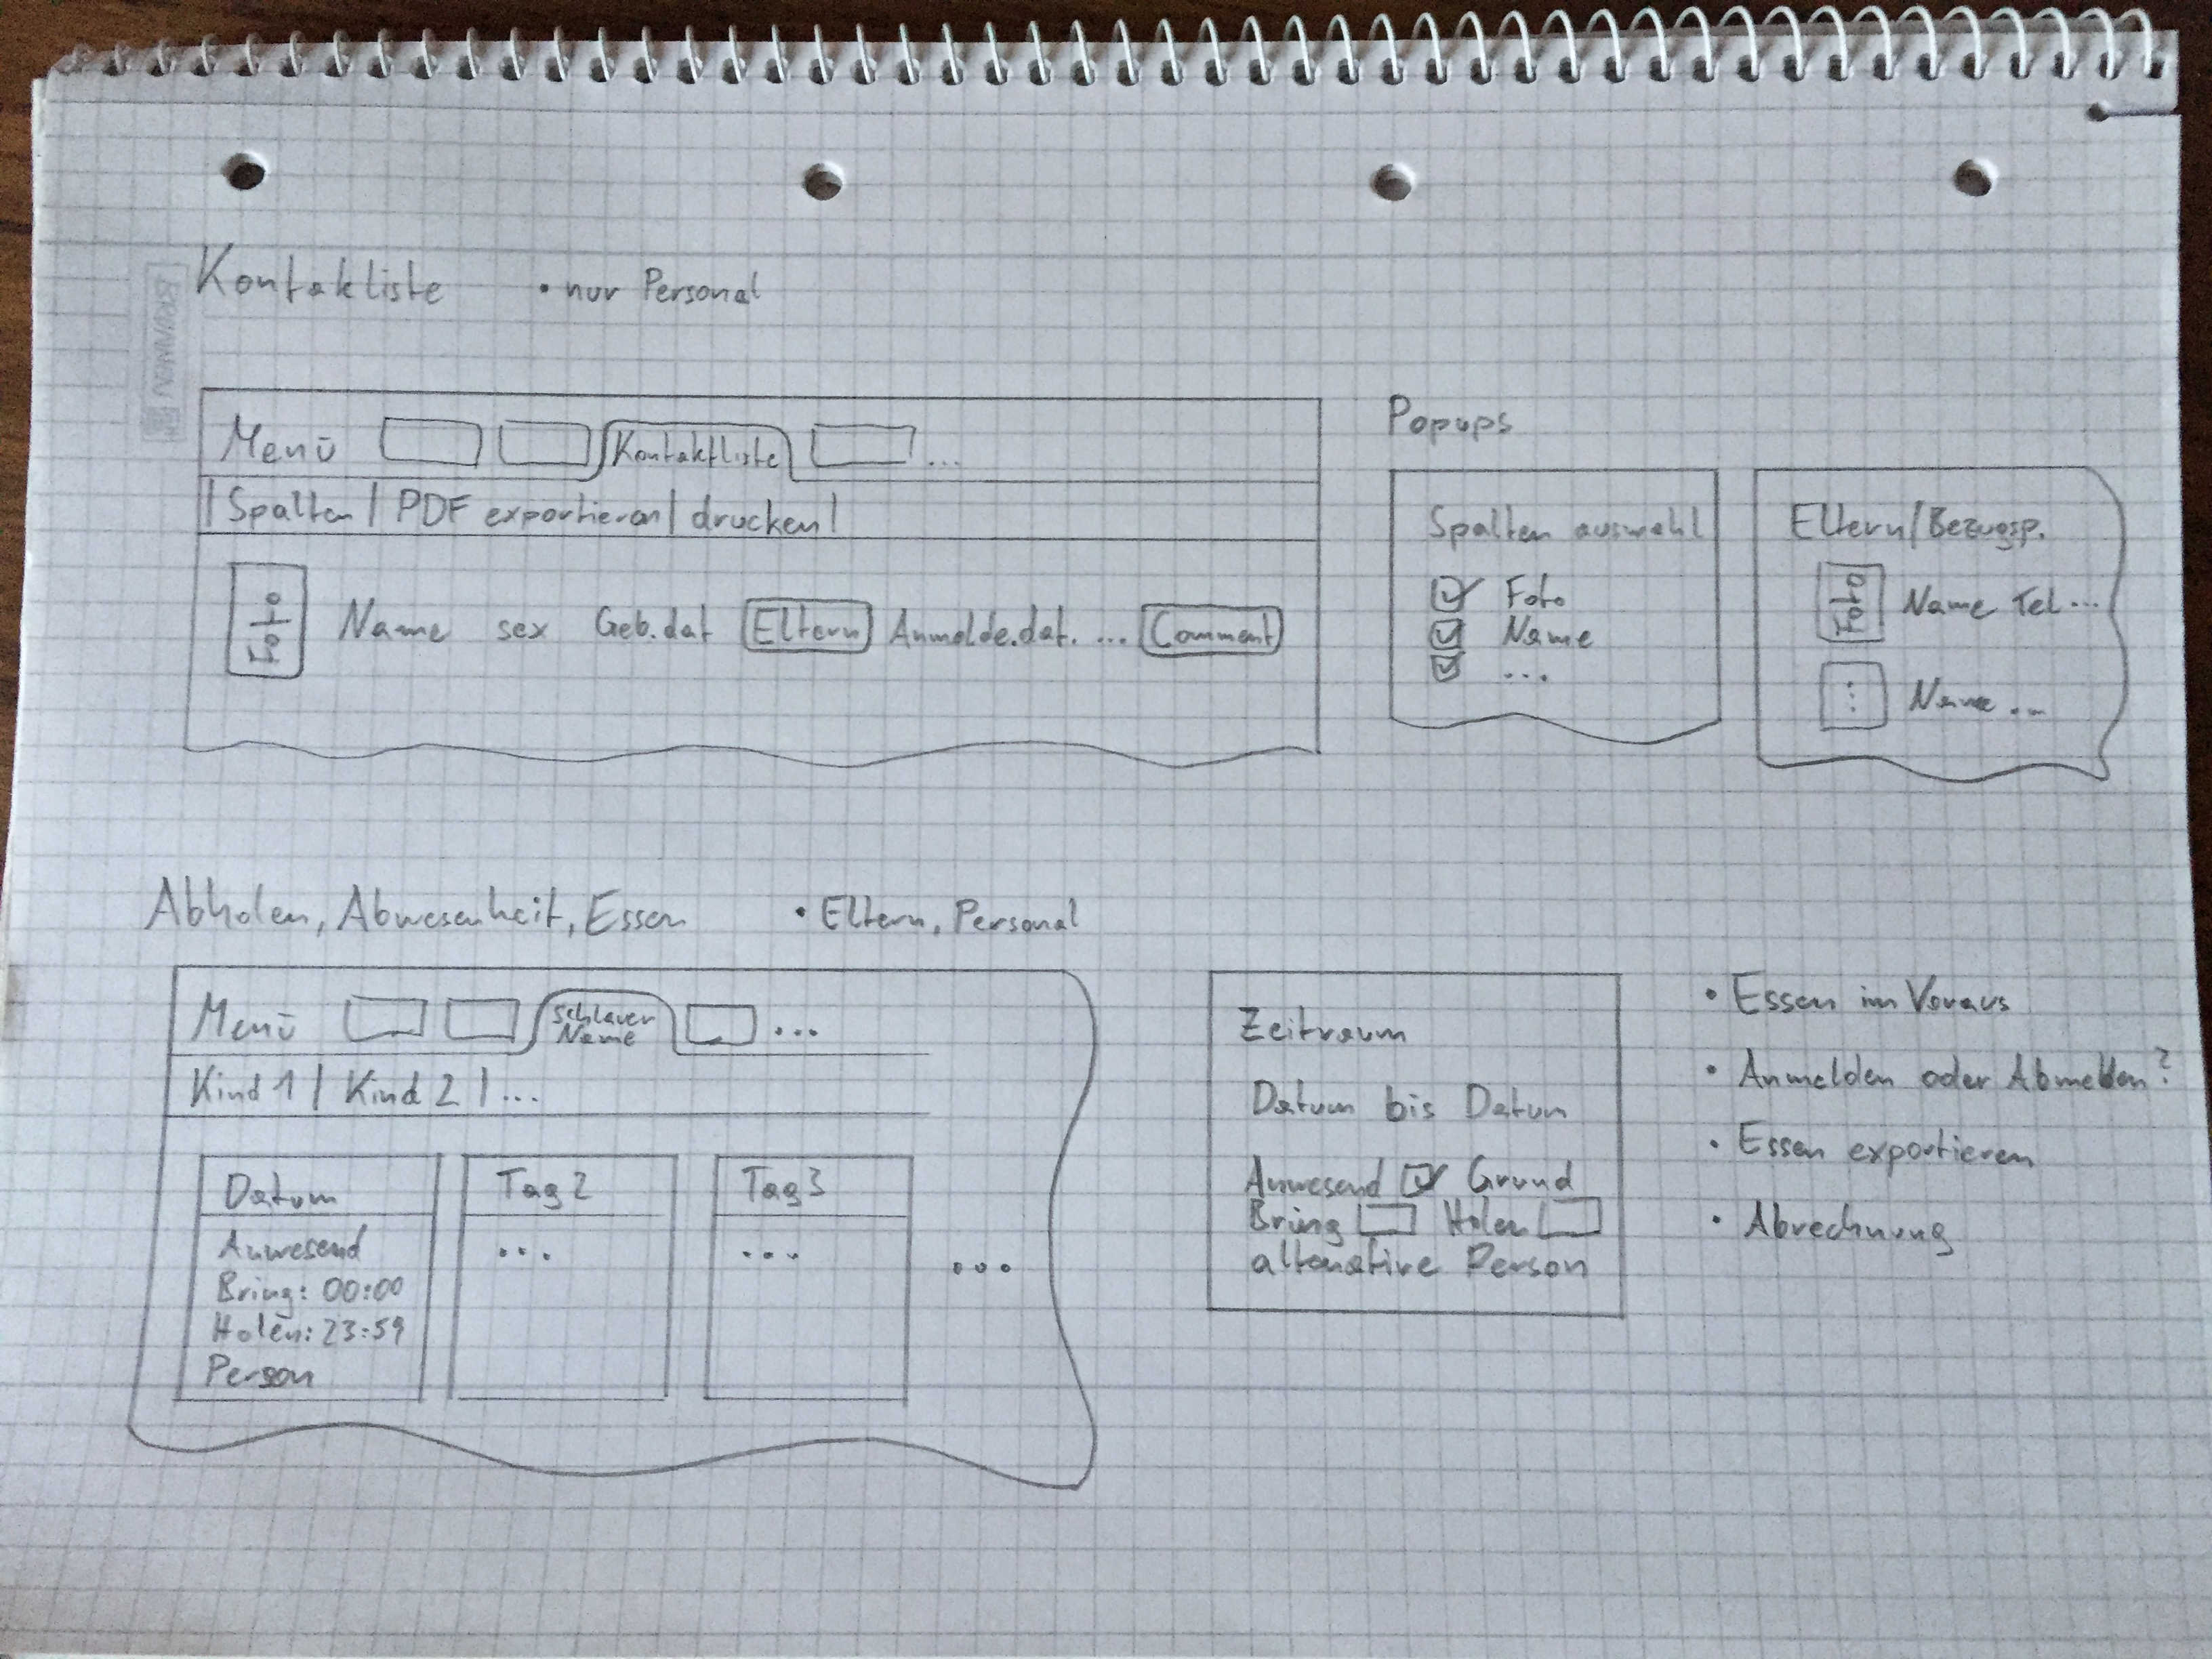 Kontakliste • nur Personal
BRUNNEN
Menü Kontaktliste ...
| Spalten | PDF exportieren | drucken |
Foto Name sex Geb.dat Eltern Anmelde.dat. ... Comment
Popups
Spalten auswahl
Foto
Name
...
Eltern/Bezugsp.
Foto Name Tel ...
... Name ...
Abholen, Abwesenheit, Essen • Eltern, Personal
Menü schlauer Name ...
Kind 1 | Kind 2 | ...
Datum
Anwesend
Bring: 00:00
Holen: 23:59
Person
Tag 2
...
Tag 3
...
...
Zeitraum
Datum bis Datum
Anwesend Grund
Bring Holen
alternative Person
• Essen im Voraus
• Anmelden oder Abmelden?
• Essen exportieren
• Abrechnung